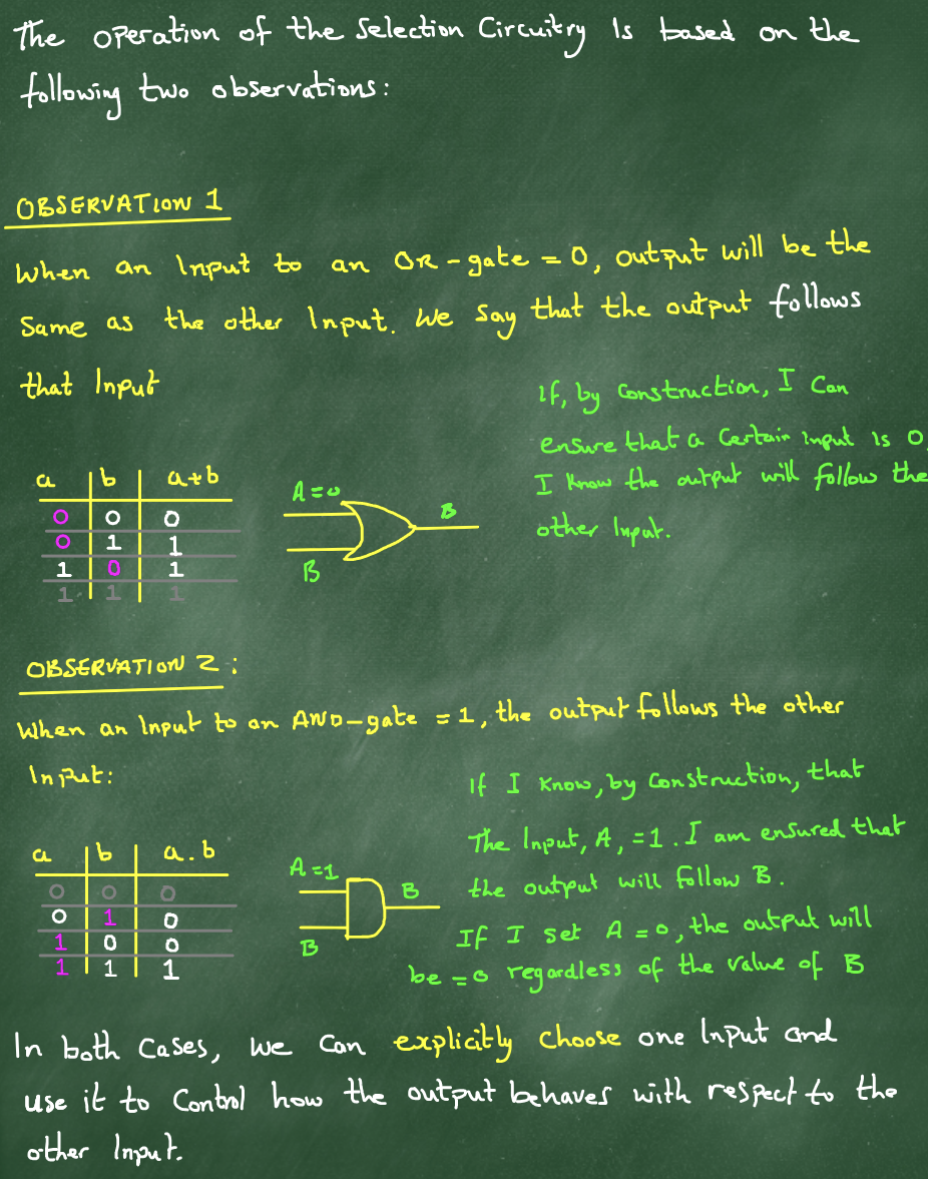 The operation of the Selection Circuitry Is based on the
following two observations:
OBSERVATION 1
When an Input to an OR-gate = 0, output will be the
Same as the other Input. We say that the output follows
that Input
If, by Construction, I Can
ensure that a Certain input is 0,
I Know the output will follow the
other Input.
a b a+b
0 0 0
0 1 1
1 0 1
1 1 1
A=0
B
B
OBSERVATION 2:
When an Input to an AND-gate = 1, the output follows the other
Input:
If I Know, by Construction, that
The Input, A, =1. I am ensured that
the output will follow B.
If I set A=0, the output will
be =0 regardless of the value of B
a b a.b
0 0 0
0 1 0
1 0 0
1 1 1
A=1
B
B
In both Cases, we Can explicitly choose one Input and
use it to Control how the output behaves with respect to the
other Input.